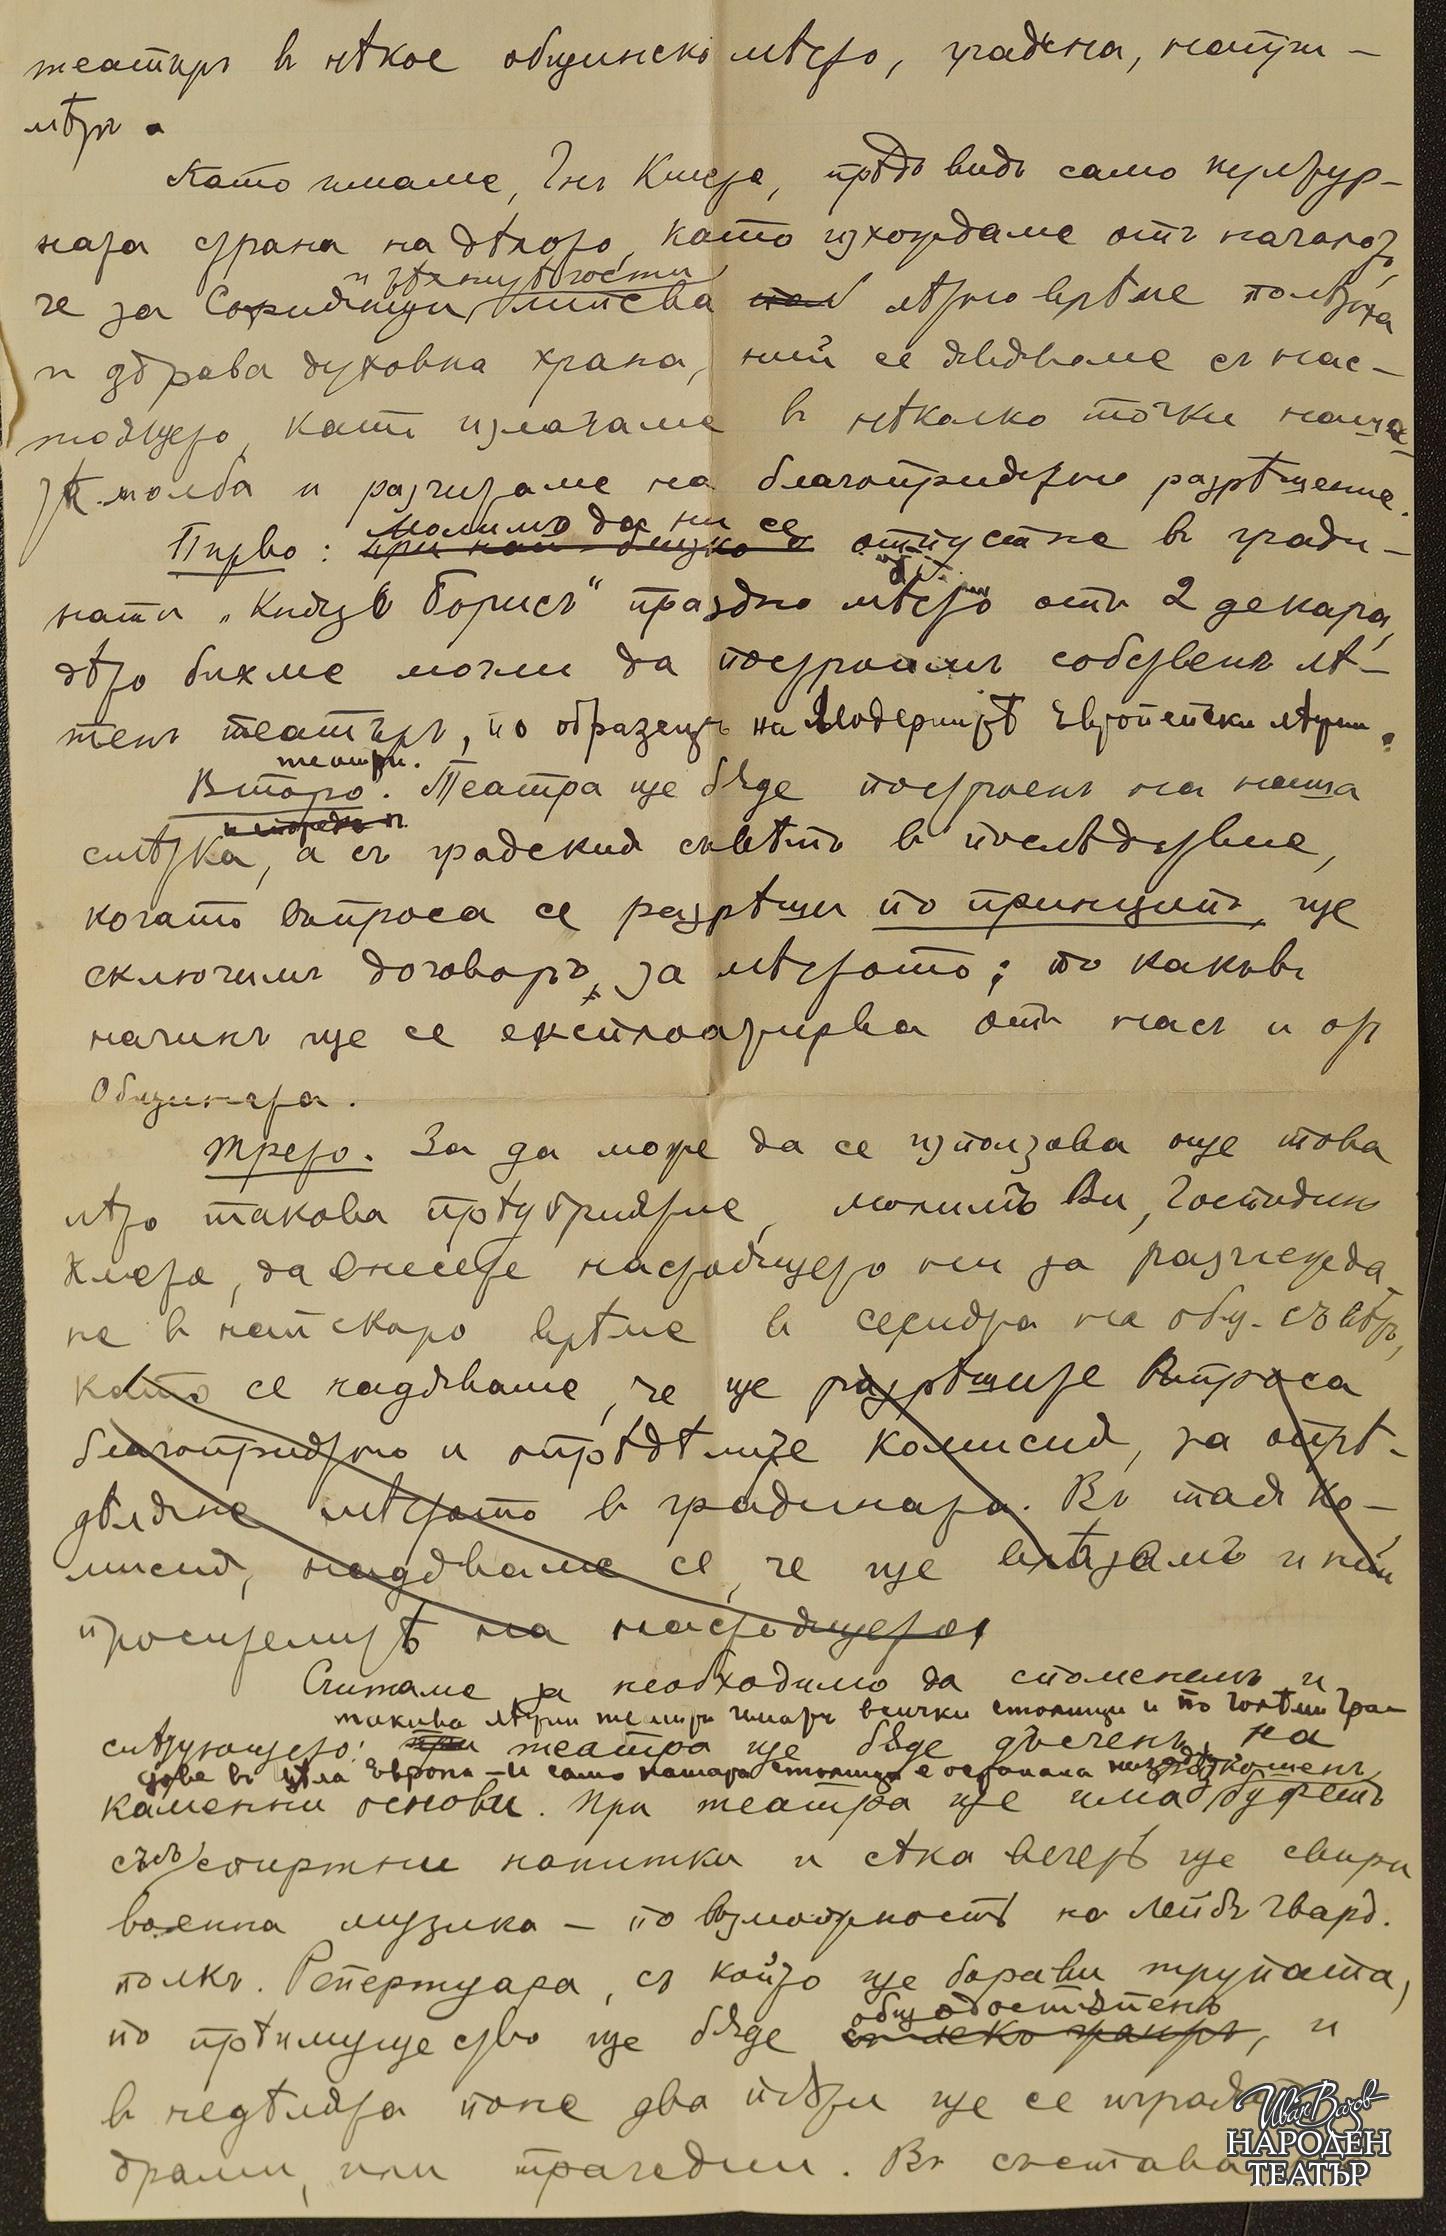 театъръ в нѣкое общинско мѣсто, градина, напри-
мѣръ.
Като имаме, Гнъ Кмете, прѣдъ видъ само култур-
ната страна на дѣлото, като изхождаме отъ начало,
че за Софиянци и гѫ липсва лѣтно врѣме полѣзна
и здрава духовна храна, ний се явяваме съ нас-
тоящето, като излагаме в нѣколко точки наша-
та молба и разчитаме на благоприятно разрѣшение.
Първо: молимъ да ни се отпустне в гради-
ната „Князъ Борисъ" праздно мѣсто отъ 2 декара,
дѣто бихме могли да построимъ собственъ лѣ-
тенъ театъръ, по образецъ на модернитѣ европейски лѣтни
театри.
Второ. Театра ще бѫде построенъ на наша
смѣтка, а съ градския съвѣтъ в последствие,
когато въпроса се разрѣши по принципъ, ще
сключимъ договоръ за мѣстото; по какъвъ
начинъ ще се експлоатирва отъ насъ и отъ
Общината.
Трето. За да може да се използова още това
лѣто такова прѣдприятие, молимъ Ви, Господинъ
Кмете, да внесете настоящето ни за разглежда-
не в най скоро врѣме в сесията на общ. съвѣтъ,
като се надѣваме, че ще разрѣшите въпроса
благоприятно и опрѣдѣлите комисия, за опрѣ-
дѣляне мѣстото в градината. Въ тая ко-
мисия, надѣваме се, че ще влѣземъ и ний
просителитѣ на настоящето.
Считаме за необходимо да споменемъ и
такива лѣтни театри иматъ всички столици и по голѣми гра-
слѣдующето: театра ще бѫде дъсченъ, на
дове въ цѣла Европа – и само нашата столица е останала
каменни основи. При театра ще има буфетъ
съ спиртни напитки и сѣка вечеръ ще свири
военна музика – по възможность на Лейбъ гвард.
полкъ. Репертуара, съ който ще борави трупата,
по прѣимущество ще бѫде общодостѫпенъ, и
в недѣлята поне два пѫти ще се играятъ
драми, или трагедии. Въ състава
Иван Вазов
НАРОДЕН
ТЕАТЪР